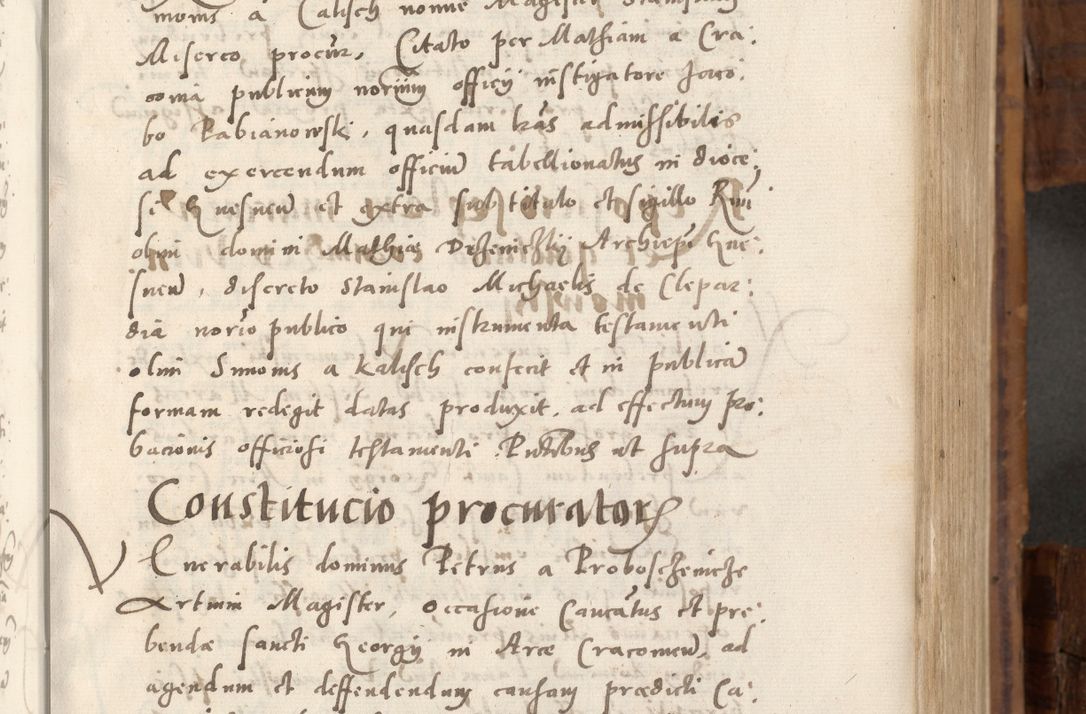 monis a Calisch nomine Magister Stanislaus
Misereo procur, Citato per Mathiam a Cra:
covia publicum norium officy instigatore Jaco:
bo Rabianowski, quasdam lras admissibilis
ad exercendum officiu tabellionatus in dioce:
si Gnesnen et extra sub titulo et sigillo Rmi
olim domini Mathiæ Drzeniczky Archiepi Gne:
snen, discreto Stanislao Michaelis de Clepar:
dia norio publico qui instrumenta testamenti
olim Simonis a Kalisch confecit et in publica
formam redegit datas produxit, ad effectum pro:
bacionis officiosi testamenti Pntibus ut supra
Constitucio procurator
Venerabilis dominus Petrus a Proboscheniche
Artium Magister, occasione Cancatus et pre:
bendæ sancti Georgy in Arce Cracovien, ad
agendum et deffendendum causam prædicti Ca: